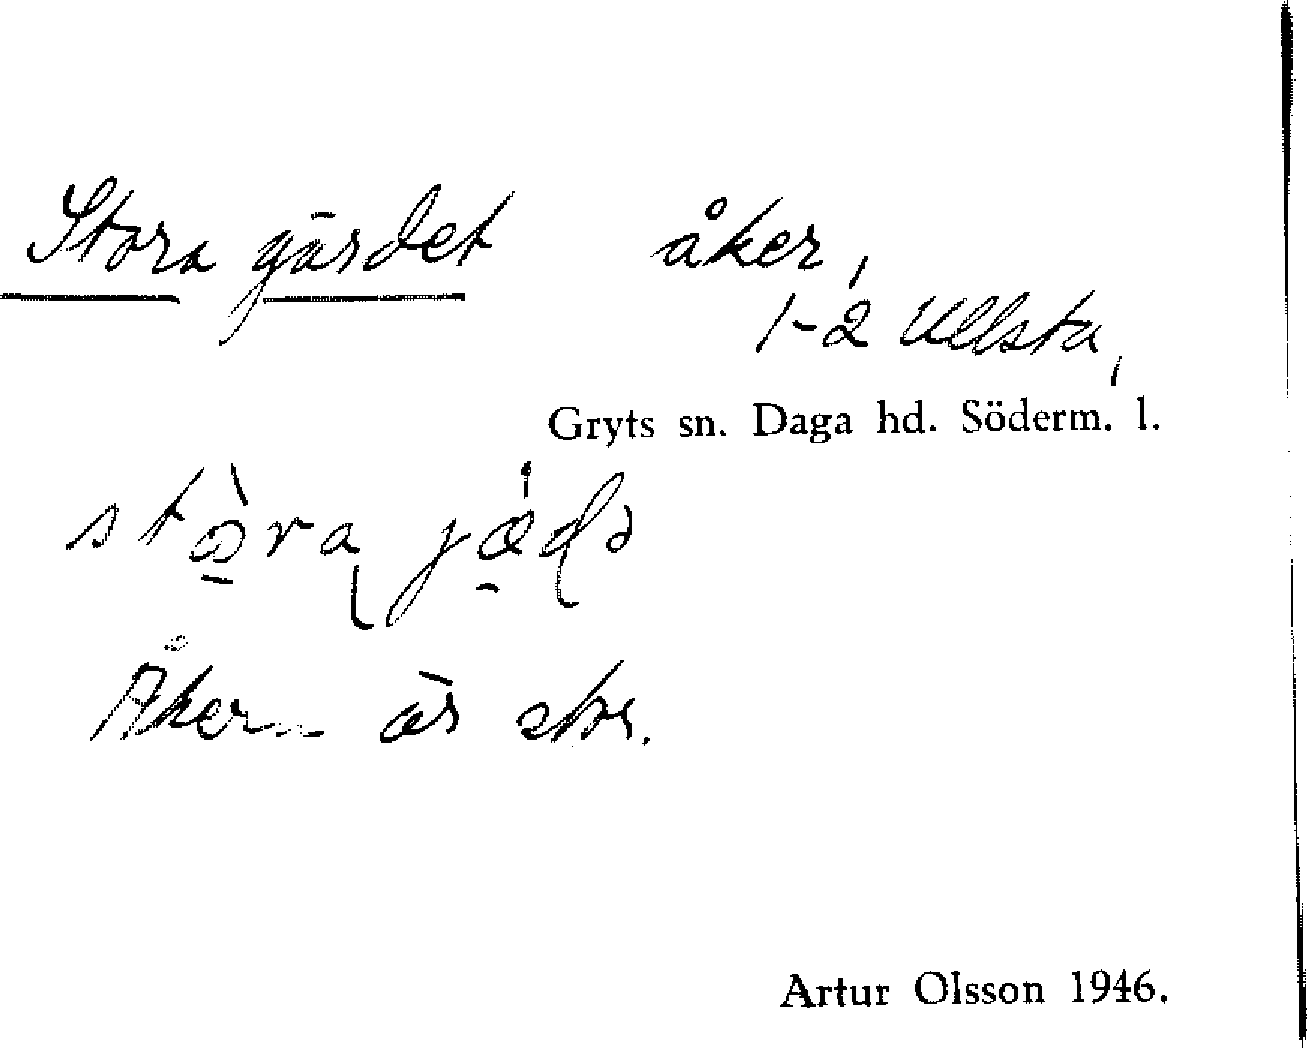 Stora gärdet åker,
1-2 Ullsta,
Gryts sn. Daga hd. Söderm. l.
Åkern är stor.
Artur Olsson 1946.